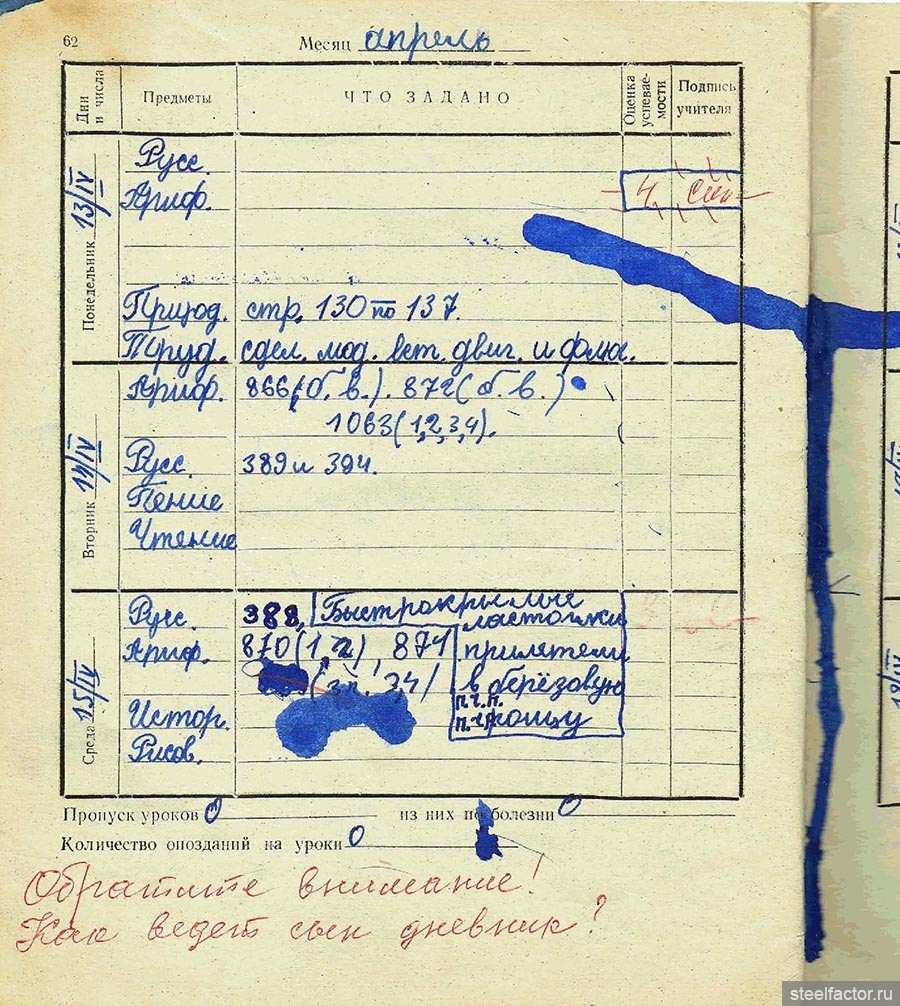 62
Месяц апрель
Дни и числа
Предметы
ЧТО ЗАДАНО
Оценка успевае-
мости
Подпись
учителя
Понедельник 13/IV
Русс.
Ариф. 4
Природ. стр. 130 по 137.
Труд. сдел. мод. вет. двиг. и флюг.
Вторник 14/IV
Ариф. 866(б.в.). 872(б.в.)
1063(1,2,3,4).
Русс. 389 и 394.
Пение
Чтение
Среда 15/IV
Русс. 388, Быстрокрылые
ласточки
Ариф. 870(1,2), 871 прилетели
в берёзовую
п.г.п.
рощу
Истор.
Рисов.
Пропуск уроков 0 из них по болезни 0
Количество опозданий на уроки 0
Обратите внимание!
Как ведет сын дневник?
steelfactor.ru